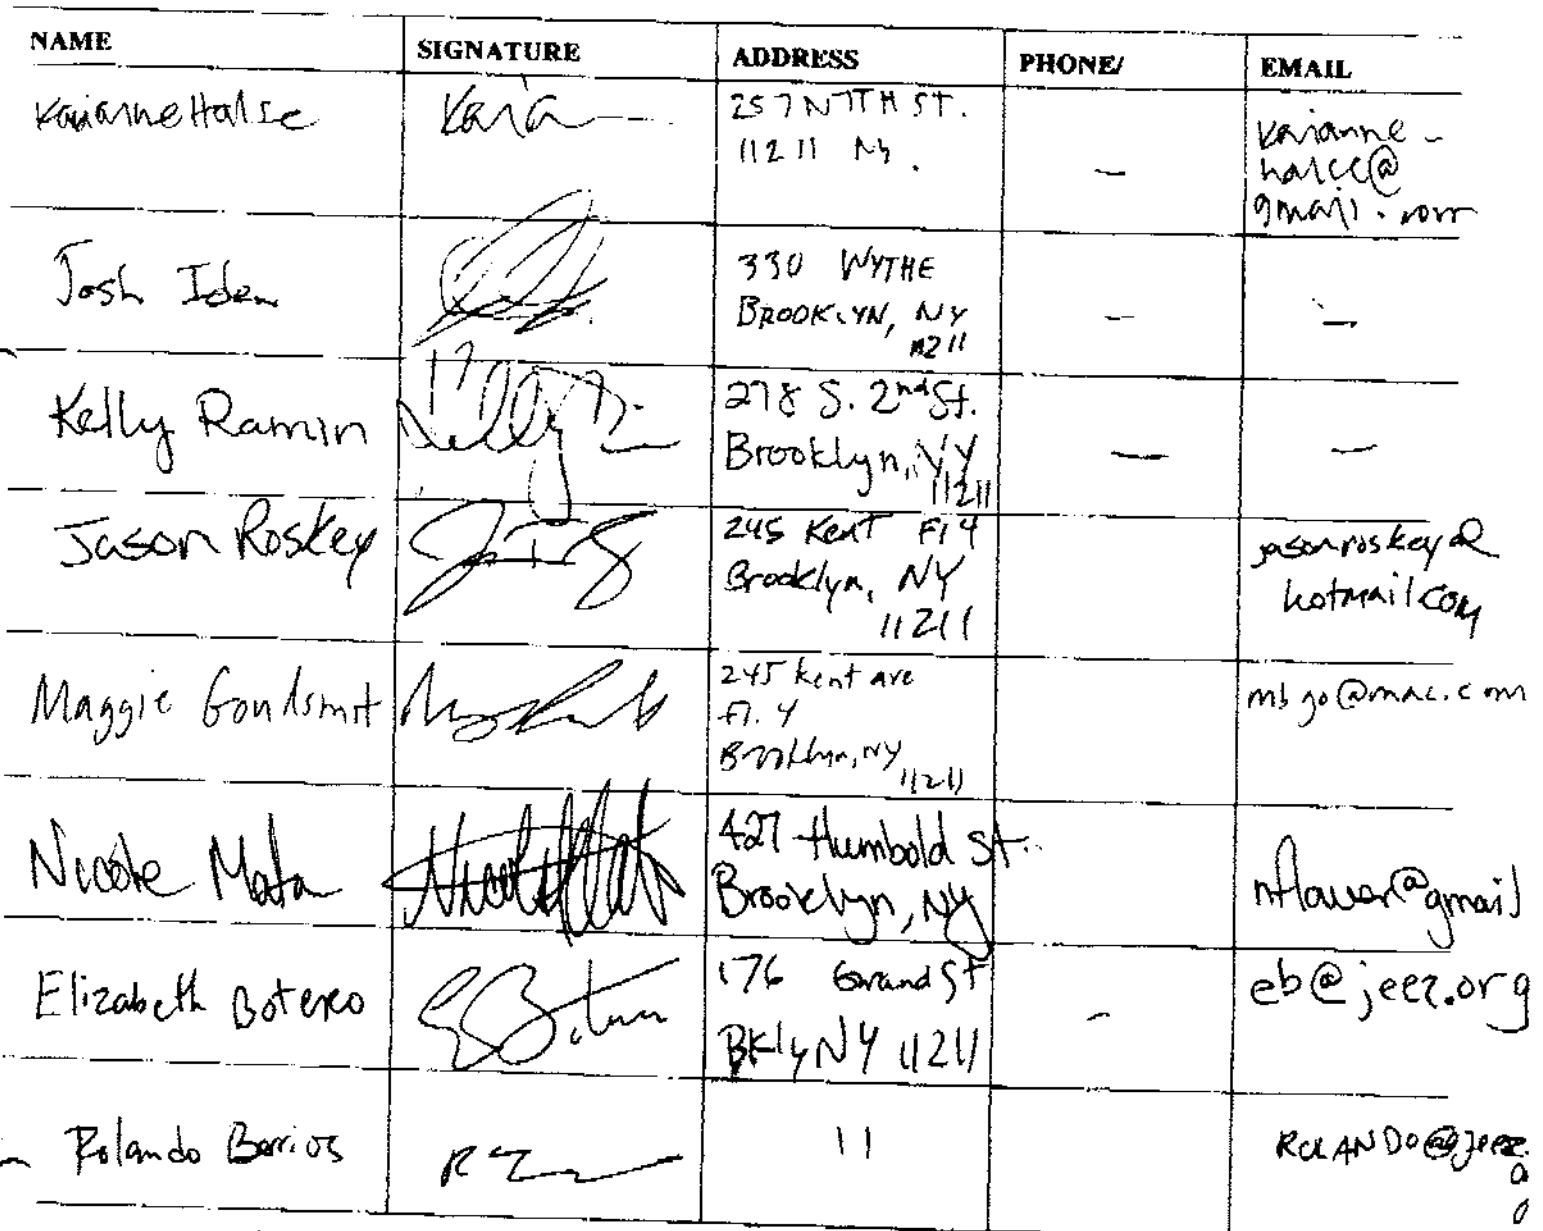 NAME SIGNATURE ADDRESS PHONE/ EMAIL
Karianne Halse 257 N7TH ST.
11211 Ny. — Karianne-
halse@
gmail.com
Josh Iden 330 WYTHE
BROOKLYN, NY — —
11211
Kelly Ramin 278 S. 2nd St.
Brooklyn, NY — —
11211
Jason Roskey 245 Kent Fl 4 jasonroskey@
Brooklyn, NY hotmail.com
11211
Maggie Goudsmit 245 Kent ave mbgo@mac.com
Fl. 4
Brooklyn, NY
11211
Nicole Mata 427 Humbold St.
Brooklyn, NY nflower@gmail
Elizabeth Botero 176 Grand St eb@jeez.org
BKly NY 11211 —
Rolando Berrios 11 ROLANDO@jeez.